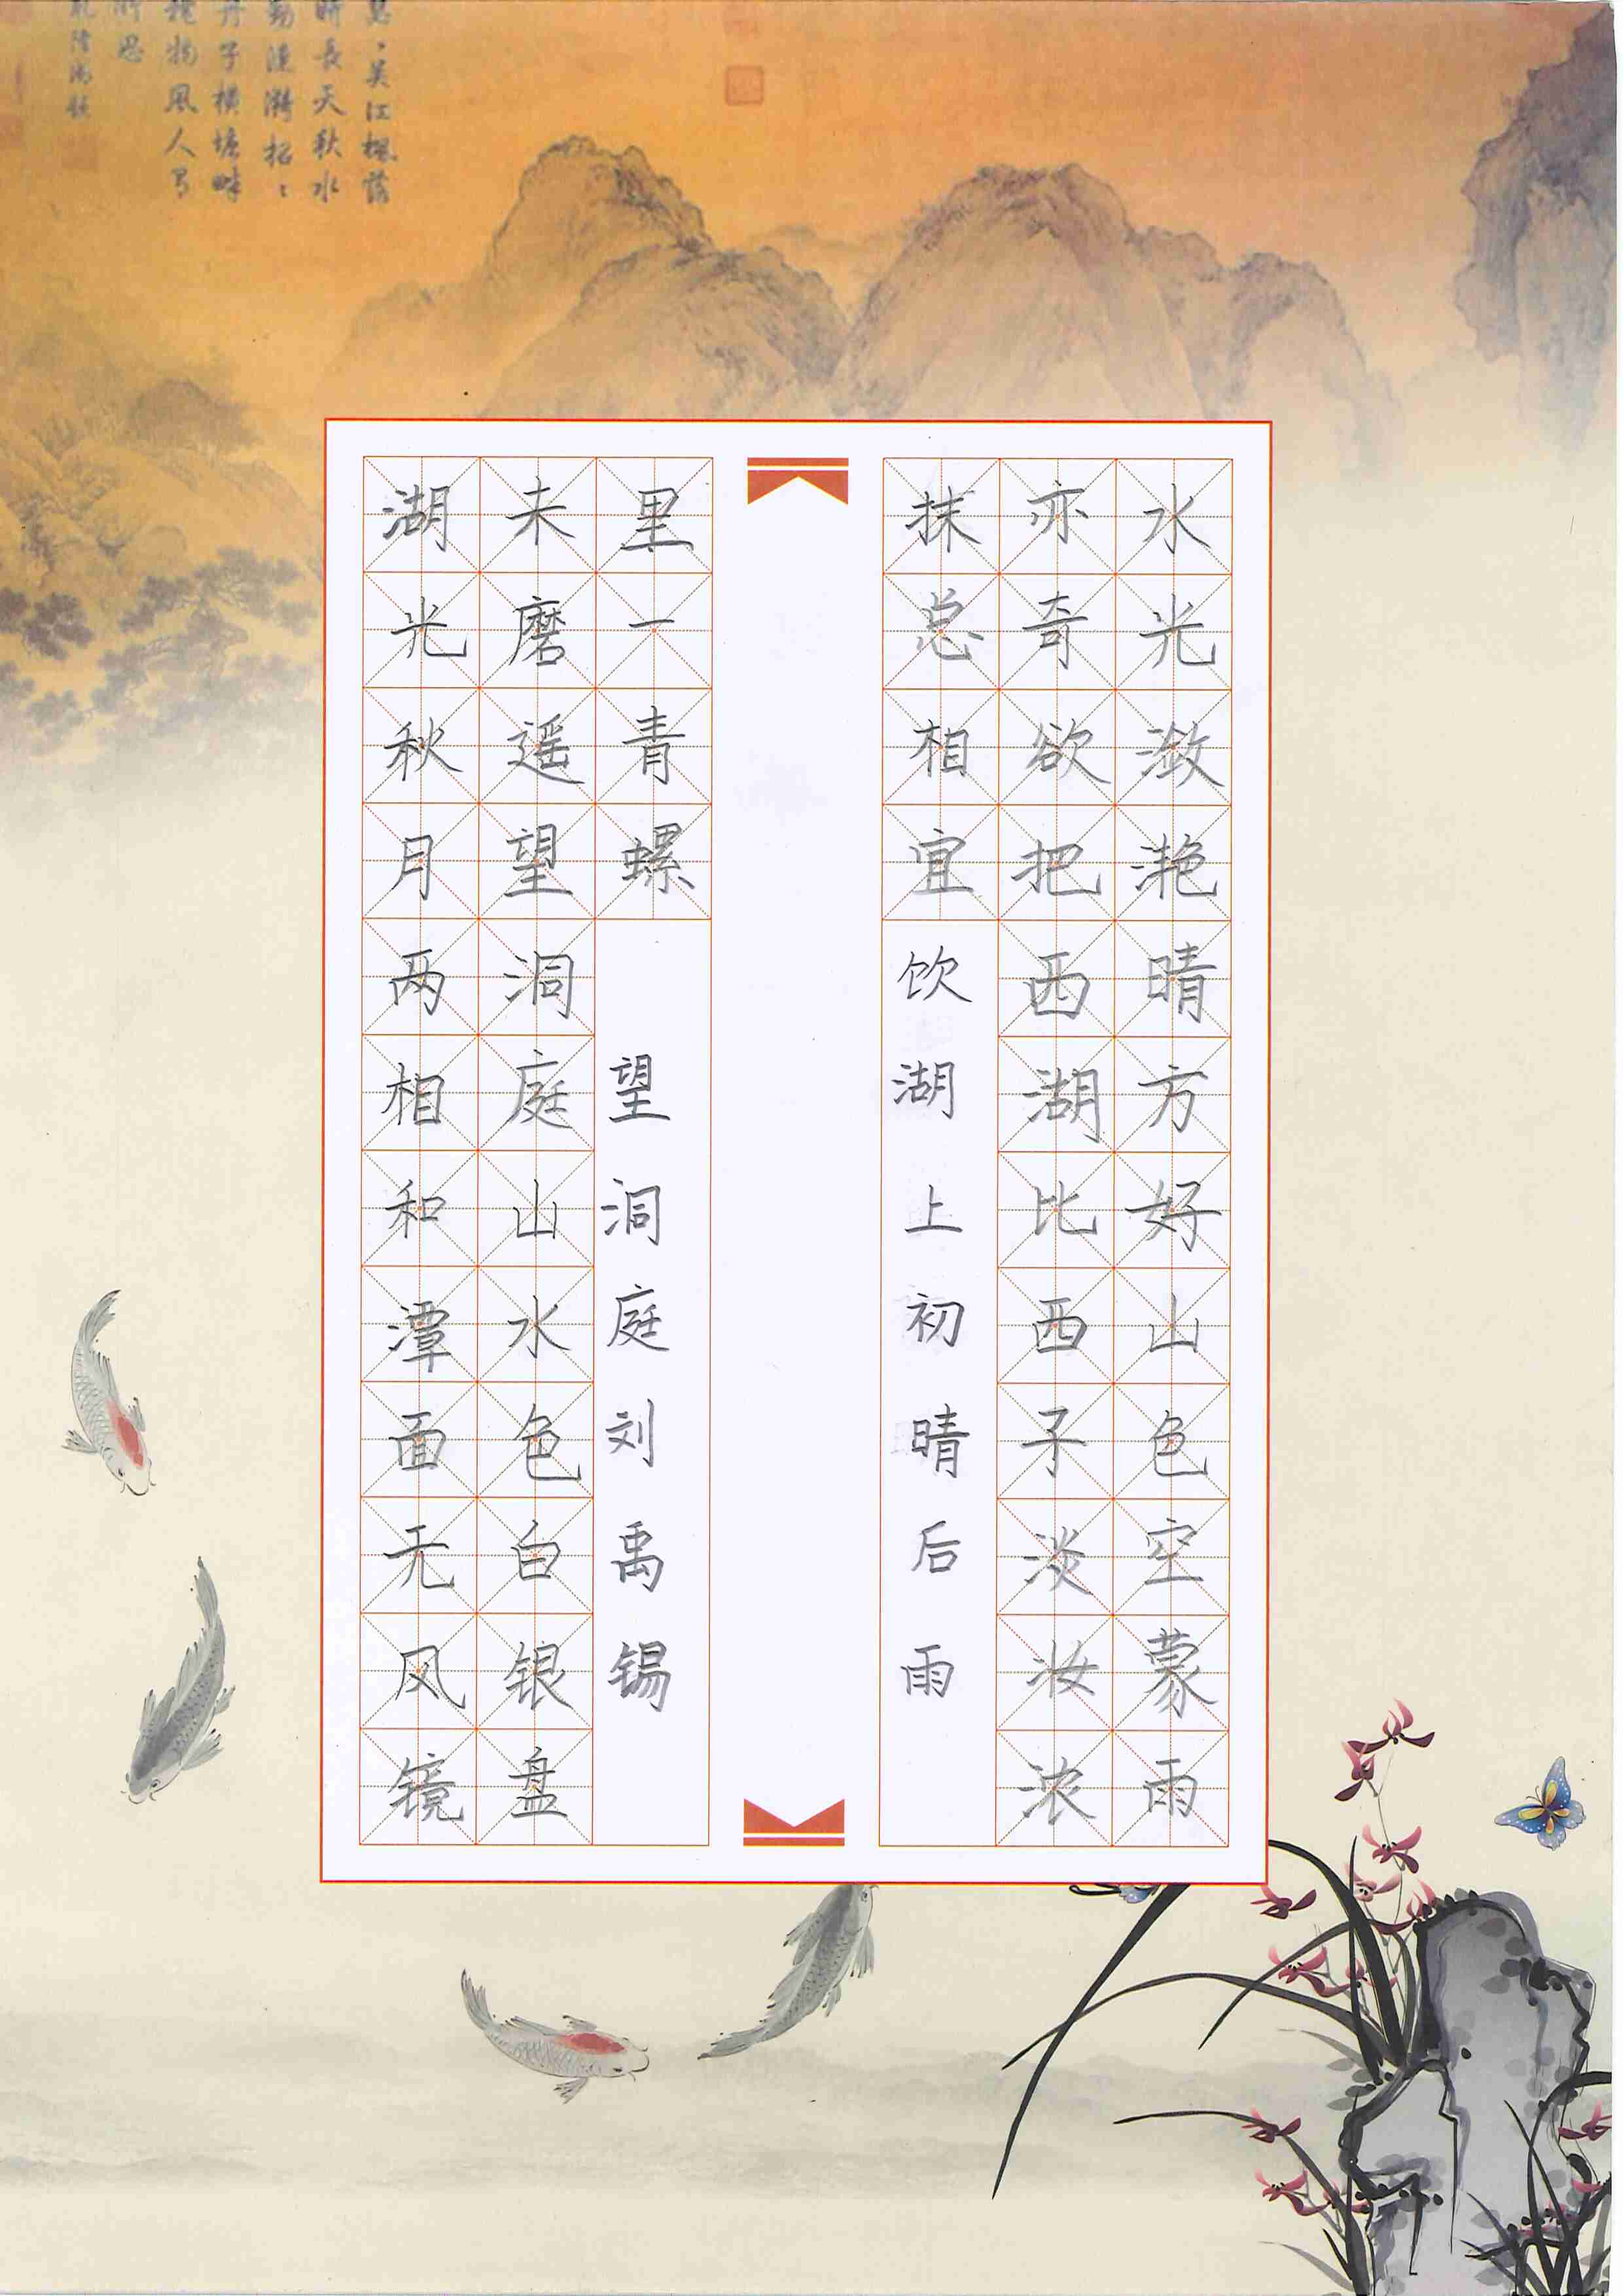 吴江楓落
長天秋水
子橫塘畔
物風人
水光潋滟晴方好山色空蒙雨
亦奇欲把西湖比西子淡妆浓
抹总相宜 饮湖上初晴后雨
湖光秋月两相和潭面无风镜
未磨遥望洞庭山水色白银盘
里一青螺 望洞庭刘禹锡